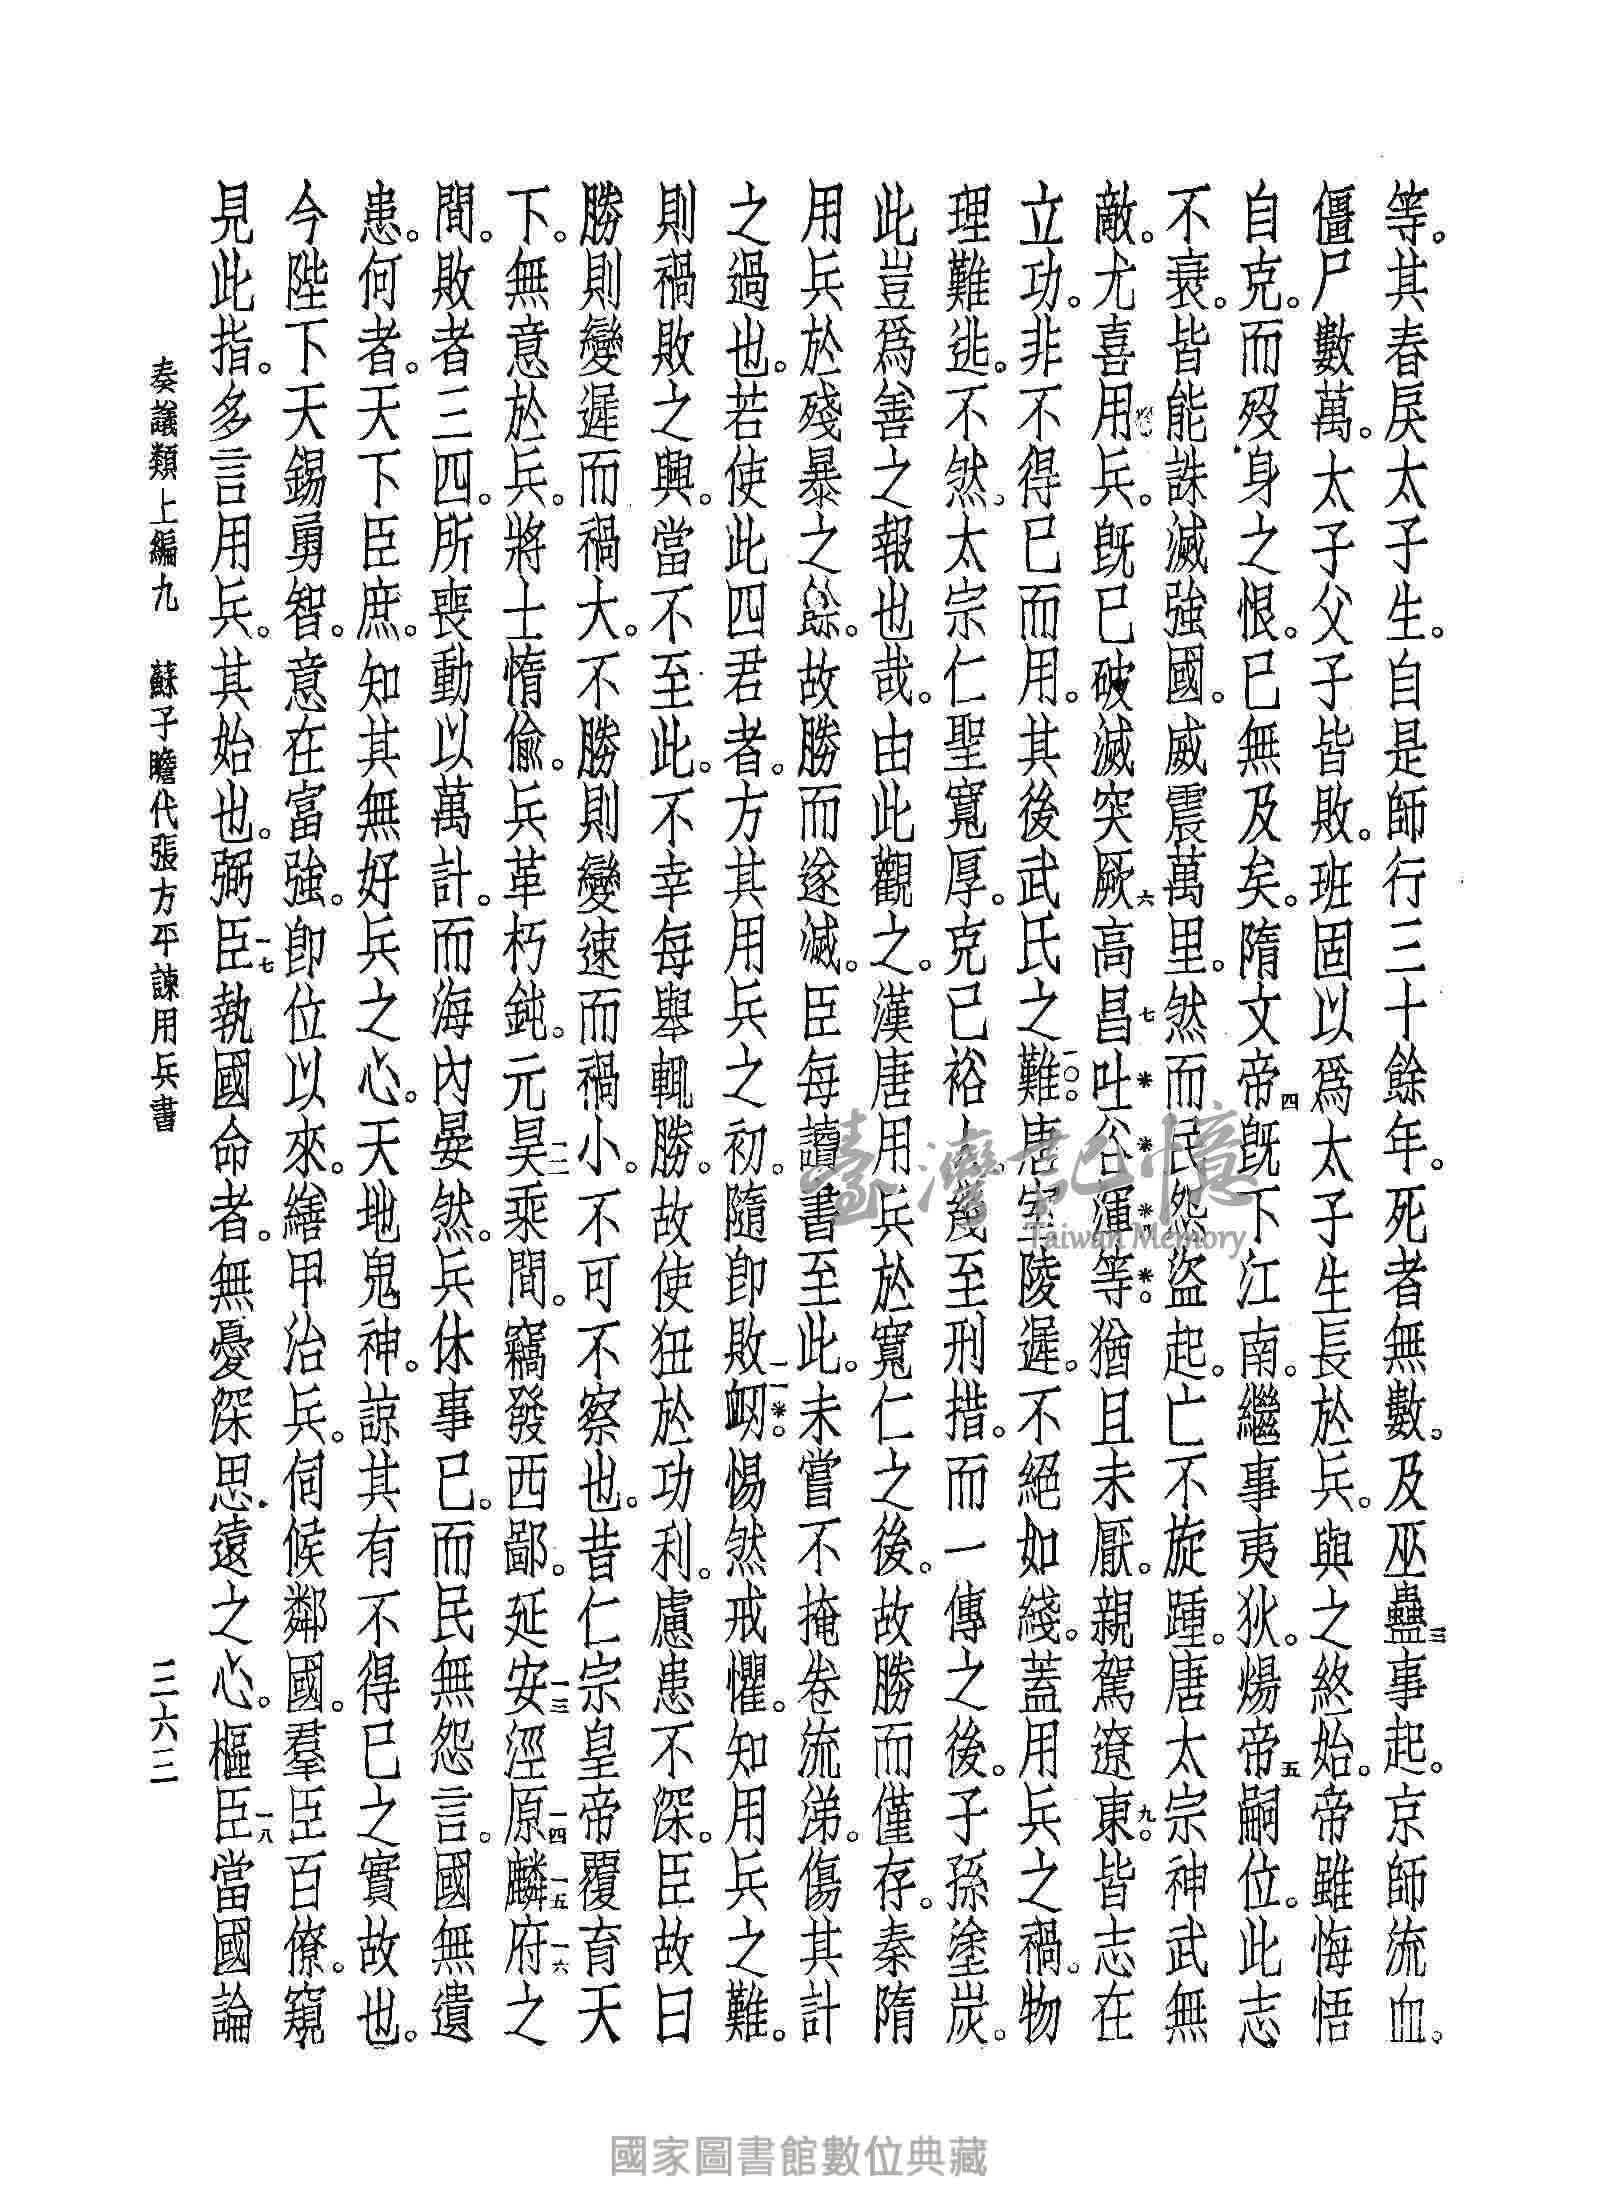 等。其春戾太子生。自是師行三十餘年。死者無數。及巫蠱三事起。京師流血。
僵尸數萬。太子父子皆敗。班固以爲太子生長於兵。與之終始。帝雖悔悟
自克。而歿身之恨。已無及矣。隋文帝四旣下江南。繼事夷狄。煬帝五嗣位。此志
不衰。皆能誅滅強國。威震萬里。然而民怨盜起。亡不旋踵。唐太宗神武無
敵。尤喜用兵。旣已破滅突厥六高昌七吐谷渾八等。猶且未厭。親駕遼東九。皆志在
立功。非不得已而用。其後武氏之難一〇。唐室陵遲。不絕如綫。蓋用兵之禍。物
理難逃。不然。太宗仁聖寬厚。克己裕人。幾至刑措。而一傳之後。子孫塗炭。
此豈爲善之報也哉。由此觀之。漢唐用兵於寬仁之後。故勝而僅存。秦隋
用兵於殘暴之餘。故勝而遂滅。臣每讀書至此。未嘗不掩卷流涕。傷其計
之過也。若使此四君者。方其用兵之初。隨卽敗衂一一。惕然戒懼。知用兵之難。
則禍敗之興。當不至此。不幸每舉輒勝。故使狃於功利。慮患不深。臣故曰
勝則變遲而禍大。不勝則變速而禍小。不可不察也。昔仁宗皇帝覆育天
下。無意於兵。將士惰偷。兵革朽鈍。元昊一二乘間。竊發西鄙。延安一三涇原一四麟一五府一六之
間。敗者三四。所喪動以萬計。而海內晏然。兵休事已。而民無怨言。國無遺
患。何者。天下臣庶。知其無好兵之心。天地鬼神。諒其有不得已之實故也。
今陛下天錫勇智。意在富強。卽位以來。繕甲治兵。伺候鄰國。羣臣百僚。窺
見此指。多言用兵。其始也。弼臣一七執國命者。無憂深思遠之心。樞臣一八當國論
奏議類上編九　蘇子瞻代張方平諫用兵書　三六三
臺灣記憶
Taiwan Memory
國家圖書館數位典藏